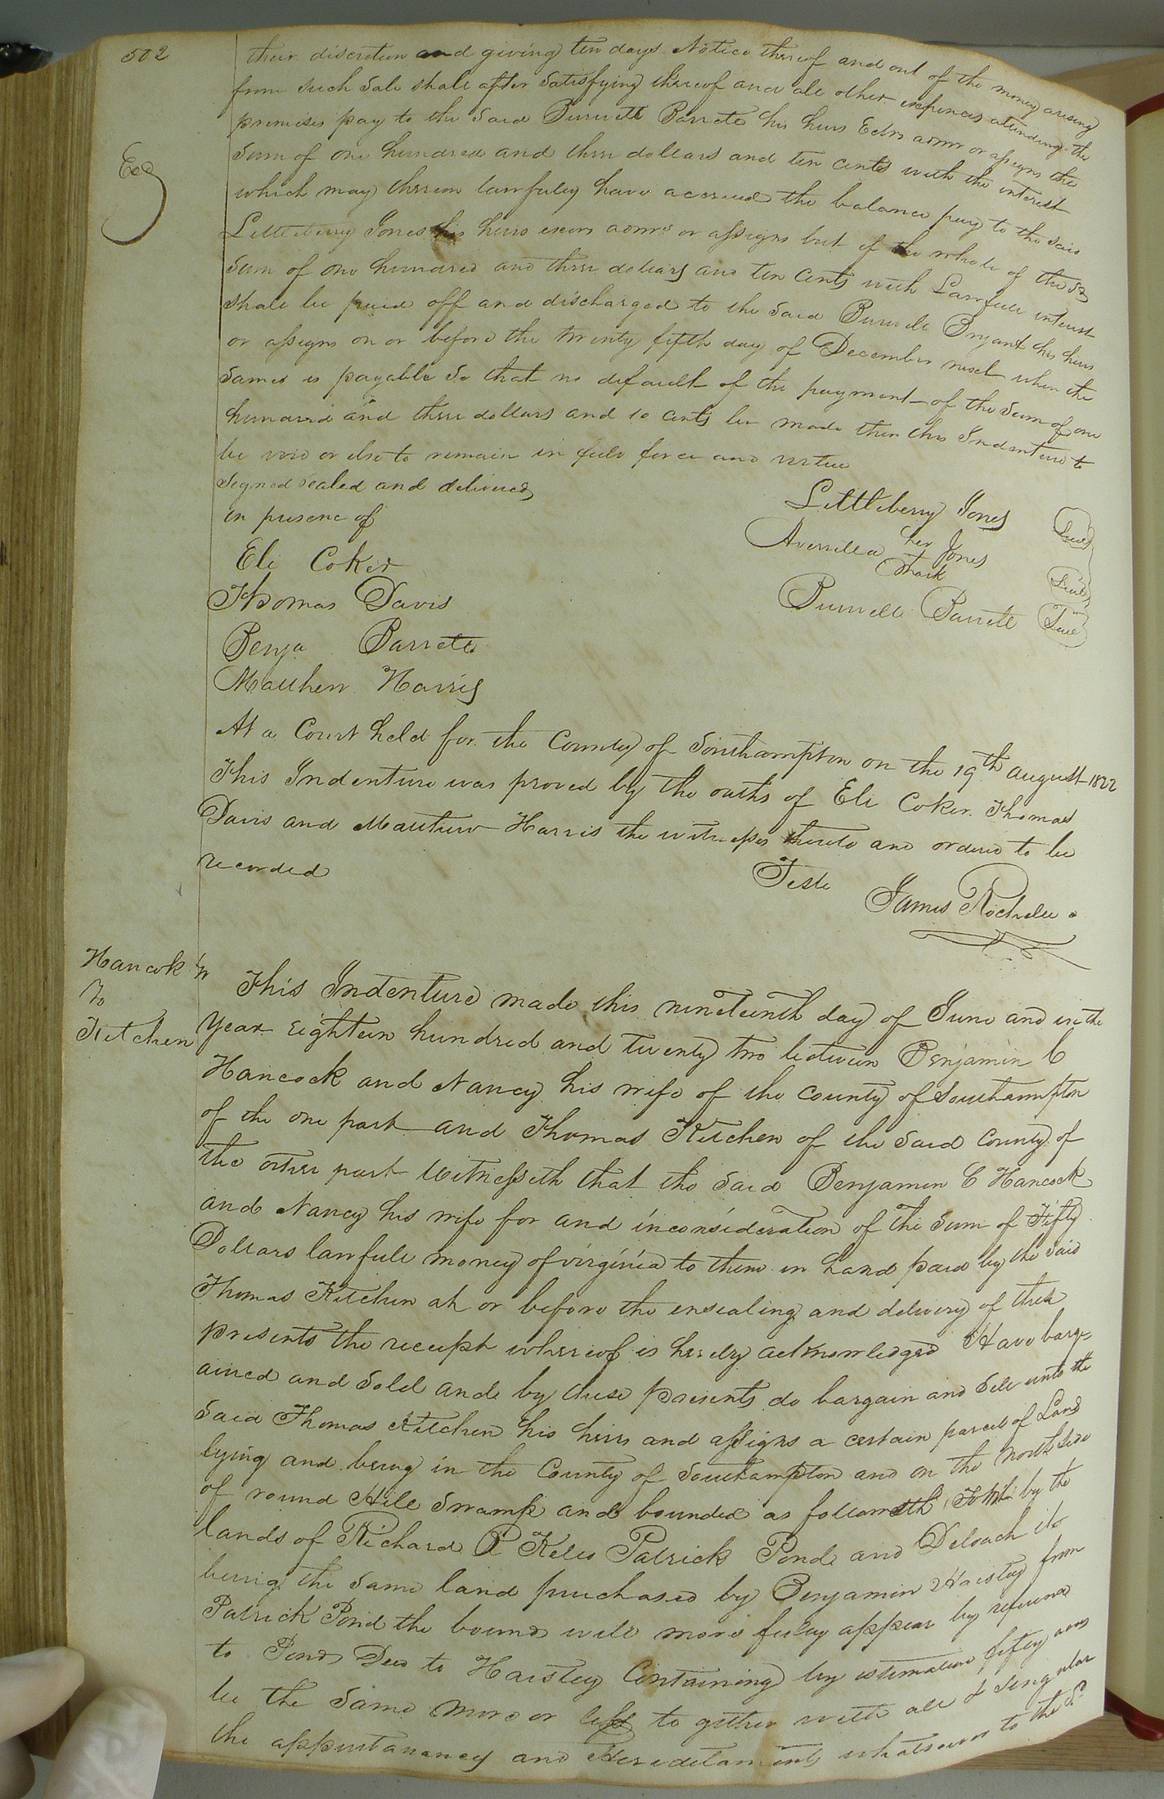 502
their discretion and giving ten days Notice thereof and out of the money arising
from such Sale shall after Satisfying thereof and all other expences attending the
premises pay to the Said Burwell Barrett his heirs Exōrs admrs or assigns the
Sum of one hundred and three dollars and ten cents with the interest
which may thereon lawfuley have accrued the balance pay to the said
Littleberry Jones his heirs exors admrs or assigns but if the whole of the sd
Sum of one hundred and three dollars and ten Cents with Lawfull interest
shall be paid off and discharged to the Said Burwell Bryant his heirs
or assigns on or before the twenty fifth day of December next when the
Same is payable So that no default of the payment of the Sum of one
hundred and three dollars and 10 cents be made then this Indenture to
be void or else to remain in full force and virtue
Signed sealed and delivered
in presence of
Eli Coker
Thomas Davis
Benja Barrett
Matthew Harris
Littleberry Jones Seal
her
Averrilla Jones Seal
mark
Burwell Barrett Seal
At a Court held for the County of Southampton on the 19th august 1822
This Indenture was proved by the oaths of Eli Coker Thomas
Davis and Matthew Harris the witnesses thereto and ordered to be
recorded
Teste
James Rochelle
Hancock & W
To
Kitchen
This Indenture made this nineteenth day of June and in the
Year Eighteen hundred and twenty two between Benjamin C
Hancock and Nancy his wife of the County of Southampton
of the one part and Thomas Kitchen of the Said County of
the other part Witnesseth that the Said Benjamin C Hancock
and Nancy his wife for and inconsideration of the Sum of Fifty
Dollars lawfull money of virginia to them in hand paid by the said
Thomas Kitchen at or before the ensealing and delivery of these
presents the receipt whereof is hereby acknowledged Have barg-
ained and Sold and by these presents do bargain and Sell unto the
Said Thomas Kitchen his heirs and assigns a certain parcel of Land
lying and being in the County of Southampton and on the North Side
of round Hill Swamp and bounded as followeth To Wit by the
lands of Richard P Kello Patrick Pond and Deloach it
being the Same land purchased by Benjamin Haistey from
Patrick Pond the bounds will more fuley appear by reference
to Ponds Deed to Haistey Containing by estimation fiftey acres
be the Same more or less to gether with all & Singular
the appurtanancy and Hereditaments whatsoever to the sd